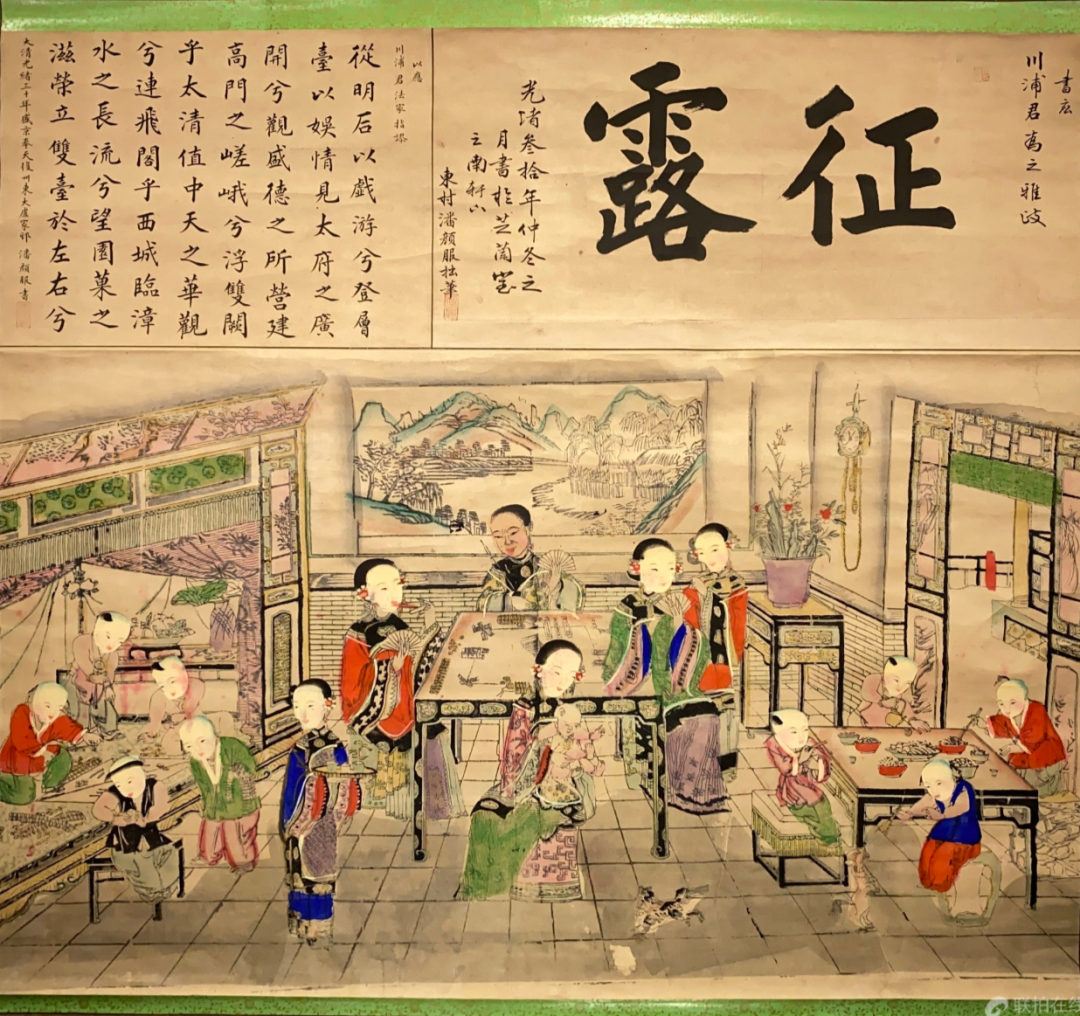 書应
川浦君為之雅政
征露
光緒叁拾年仲冬之
月書於芝蘭室
之南軒
東村潘顏服拙筆
以應
川浦君法家指謬
從明石以戲游兮登層
臺以娛情見太府之廣
開兮觀盛德之所營建
高門之嵯峨兮浮雙闕
乎太清值中天之華觀
兮連飛閣乎西城臨漳
水之長流兮望園菓之
滋榮立雙臺於左右兮
大清光緒三十年盛京奉天復州東大盧家邨潘顏服書
联拍在线